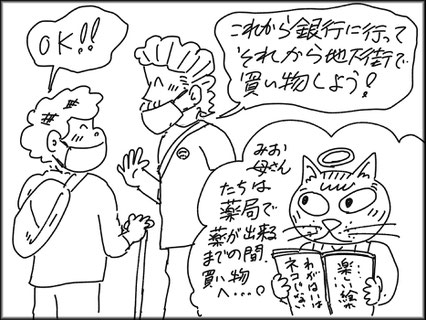 OK!!
これから銀行に行って
それから地下街で
買い物しよう!
みお
母さん
たちは
薬局で
薬が出来る
までの間
買い物
へ…。
…楽しい繰
わがはいは
ネコじゃない